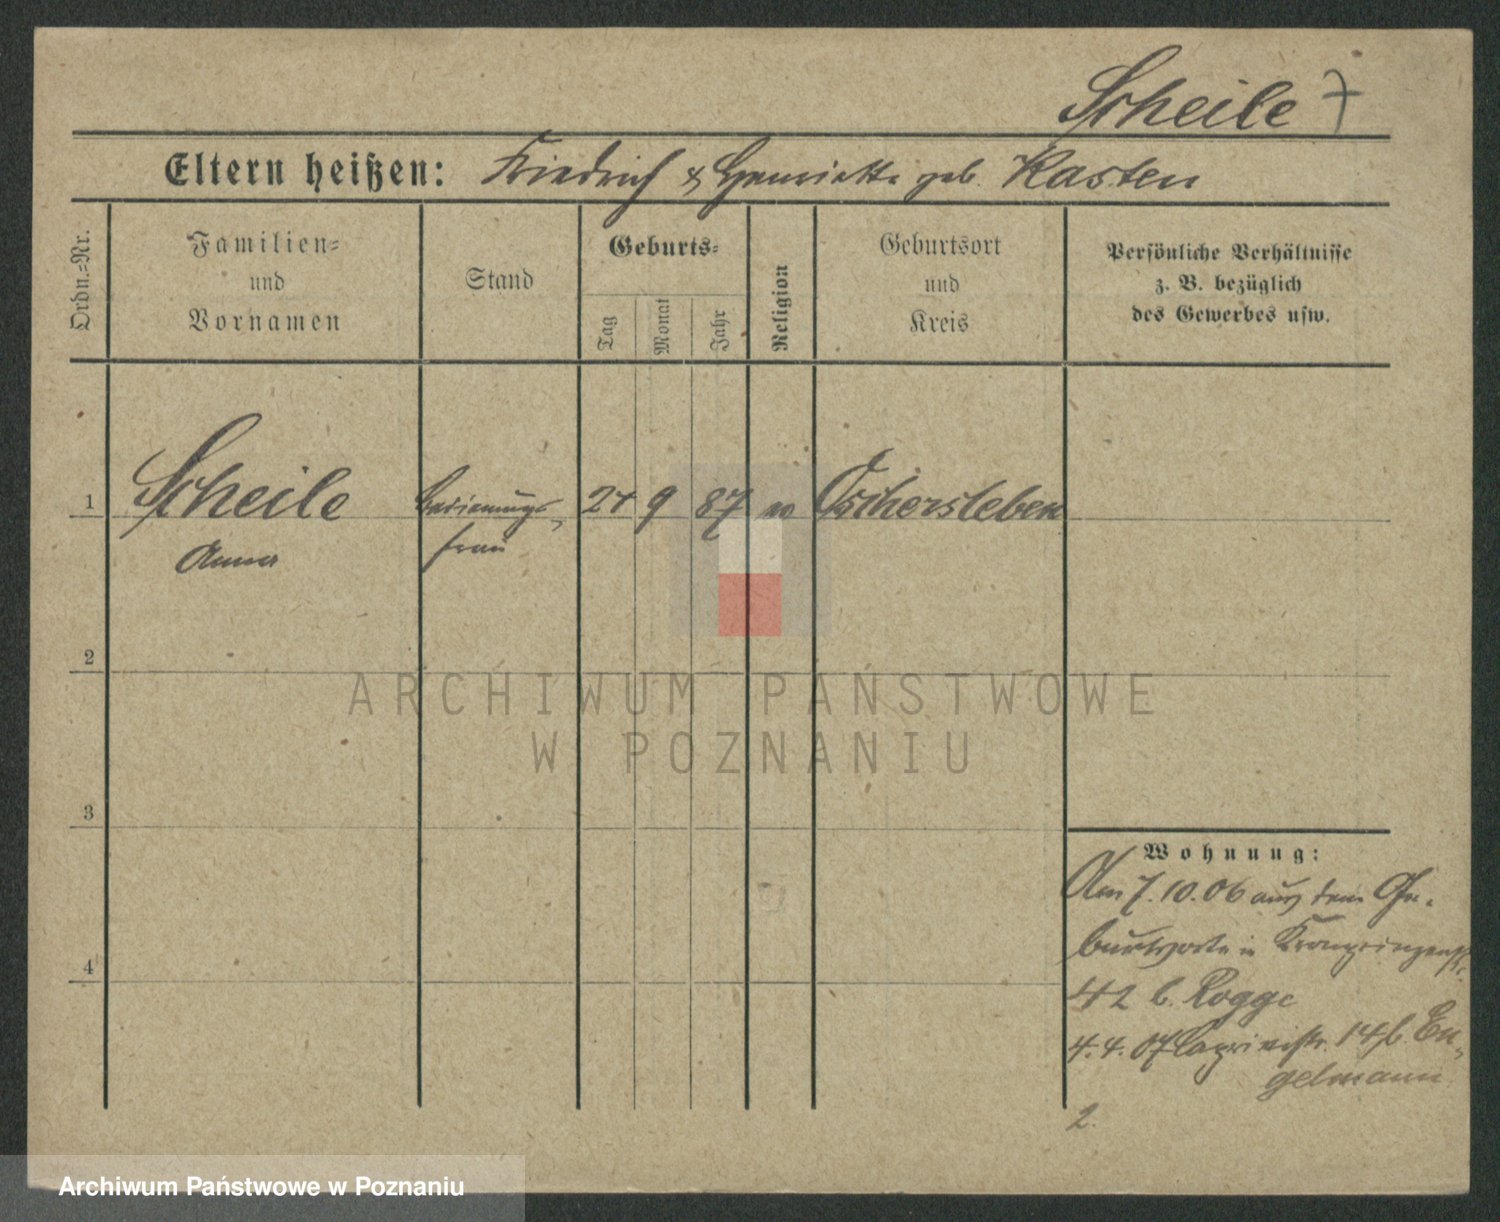 Scheile 7
Eltern heißen: Friedrich & Henriette geb. Kasten
Ordn.=Nr.
Familien=
und
Vornamen
Stand
Geburts=
Tag
Monat
Jahr
Religion
Geburtsort
und
Kreis
Persönliche Verhältnisse
z. B. bezüglich
des Gewerbes usw.
1 Scheile 24 9 87 Oschersleben
Anna frau
2
ARCHIWUM PAŃSTWOWE
W POZNANIU
3
4
Wohnung:
Am 7. 10. 06 aus dem Ge-
burtsorte in Kronprinzenstr.
42 b. Rogge
4. 4. 07 Caprivistr. 14 b. En-
gelmann
2.
Archiwum Państwowe w Poznaniu